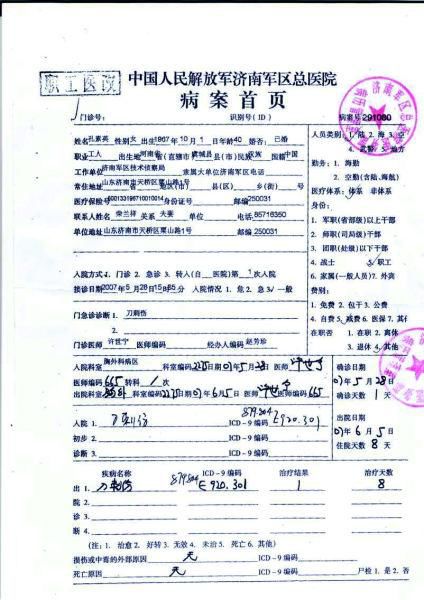 职工医改
中国人民解放军济南军区总医院
病案首页
门诊号: 识别号(ID) 病案号 291080
姓名 孔素英 性别 女 出生 1967年10月1日 年龄 40 婚否: 已婚
职业 工人 出生地 河南省(直辖市) 虞城县(市)民族 汉族 国籍 中国
工作单位 济南军区技术侦察局 隶属大单位 济南军区 电话
常住地址 山东济南市天桥区粟山路1号 县(区) 乡(街) 号
医疗保险号 身份证号 邮编 250031
联系人姓名 荣兰祥 关系 夫妻 单位 电话 85716350
单位地址 山东济南市天桥区粟山路1号 邮编 250031
人员类别: 1. 陆 2. 海 3. 空
4. 武警 5. 地方
勤务: 1. 海勤
2. 空勤(含陆、海航)
医疗体系: 体系 非体系
身份:
1. 军职(省部级)以上干部
2. 师职(司局级)干部
3. 团职(处级)以下干部
4. 战士 5. 职工
6. 家属(一般人员) 7. 外宾
费别:
1. 免费 2. 包干 3. 公费
4. 自费 5. 减费 6. 医保 7. 其他
在职否 1. 在职 2. 离休
3. 退休 4. 其他
入院方式 4. 门诊 2. 急诊 3. 转入(自 医院)第1次入院
接诊日 2007年5月28日15时 分 入院情况 1. 危 2. 急 3. 一般
门急诊诊断 1. 刀刺伤
2.
门诊医师 许世宁 医师编码 经办人编码 赵芳珍
入院科室 胸外科病区 科室编码 日期 07年5月28日 医师
医师编码 665 转科 1 次
出院科室 科室编码 日期 07年6月5日 医师 医师编码 665
确诊日期
07年5月28日
确诊天数 1 天
入院 1. 刀刺伤 879.804 ICD-9编码 E920.301
初步 2. ICD-9编码
诊断 3. ICD-9编码
出院日期
07年6月5日
住院天数 8 天
疾病名称 ICD-9编码 治疗结果 治疗天数
出 1. 刀刺伤 879.804 E920.301 1 8
院 2.
诊 3.
断 4.
(注: 1. 治愈 2. 好转 3. 无效 4. 未治 5. 死亡 6. 其他)
损伤或中毒的外部原因 无 ICD-9编码
死亡原因 无 ICD-9编码 尸检 1. 是 2. 否